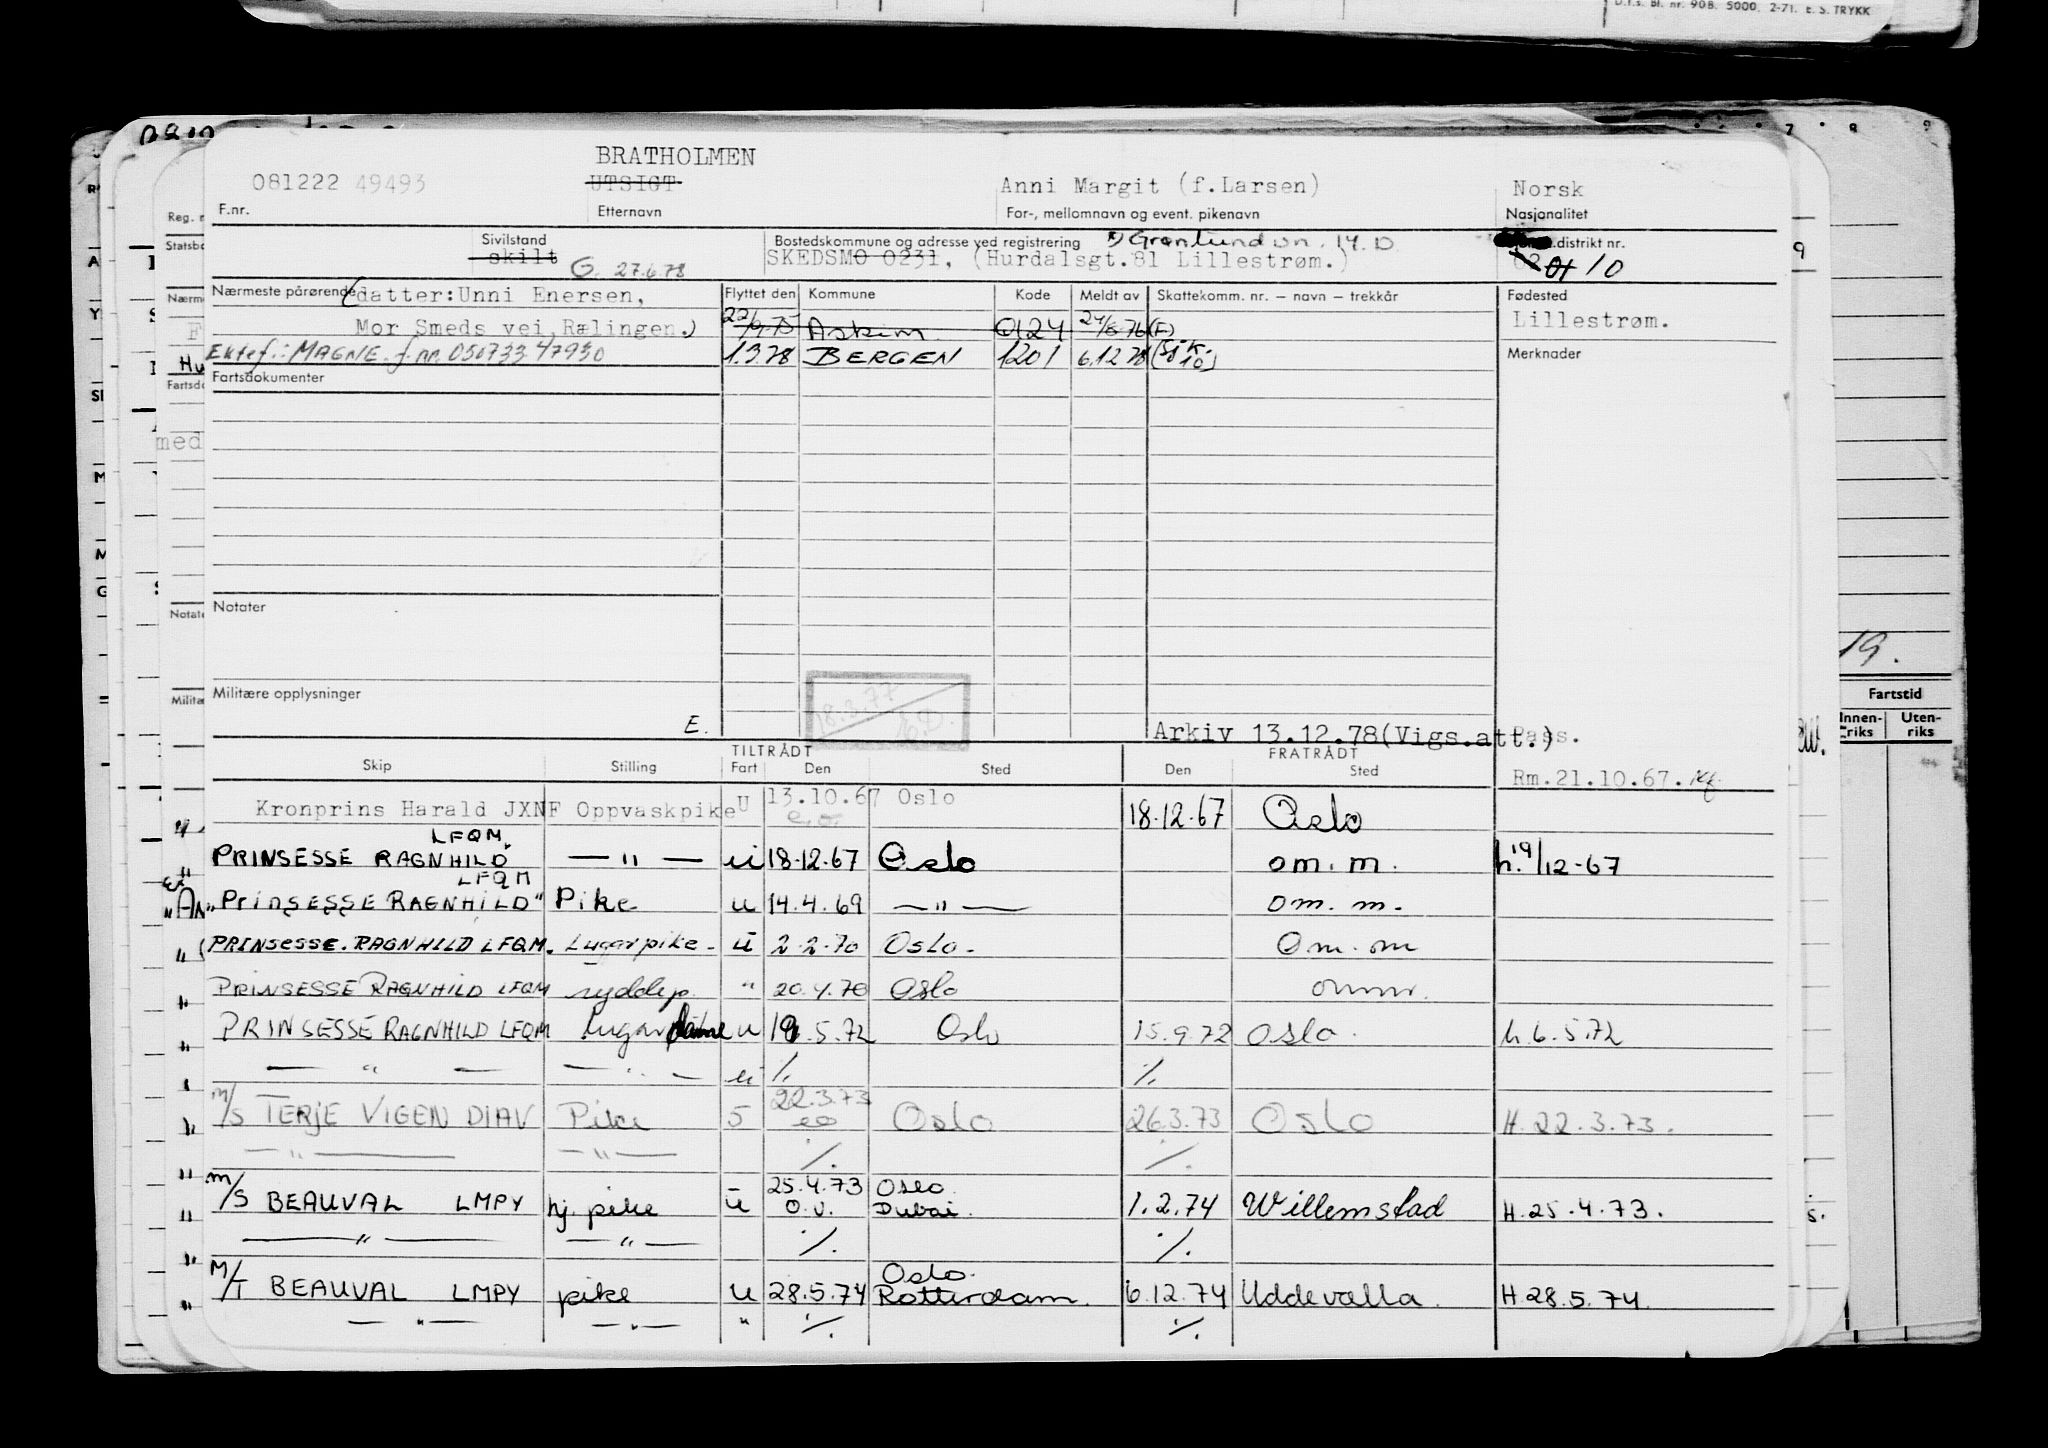 D.f.s. Bl. nr. 908. 5000. 2-71. E. S. TRYKK
BRATHOLMEN
081222 49493 UTSIGT Anni Margit (f.Larsen) Norsk
F.nr. Etternavn For-, mellomnavn og event. pikenavn Nasjonalitet
Sivilstand Bostedskommune og adresse ved registrering Grønlund vn. 14. D. distrikt nr.
skilt G. 27.6.78 SKEDSMO 0231, (Hurdalsgt.81 Lillestrøm.) 01 10
Nærmeste pårørende (datter:Unni Enersen, Flyttet den Kommune Kode Meldt av Skattekomm. nr. – navn – trekkår Fødested
Mor Smeds vei, Rælingen.) Askim 0124 24/8-76 (F) Lillestrøm.
Ektef.: MAGNE f.nr. 050733 47930 1.3.78 BERGEN 1201 6.12.78 Merknader
Fartsdokumenter
Notater
Militære opplysninger 18.3.77
E. Arkiv 13.12.78(Vigs.att.) Pass.
TILTRÅDT FRATRÅDT
Skip Stilling Fart Den Sted Den Sted Rm.21.10.67.
Kronprins Harald JXNF Oppvaskpike U 13.10.67 Oslo 18.12.67 Oslo
e.o.
LFQM.
PRINSESSE RAGNHILD — " — u 18.12.67 Oslo om. m. h. 19/12-67
LFQM
"PRINSESSE RAGNHILD" Pike u 14.4.69 — " — om. m.
PRINSESSE. RAGNHILD LFQM. Lugarpike - u 2.2.70 Oslo. Om. m
PRINSESSE RAGNHILD LFQM ryddep " 20.4.70 Oslo omm.
PRINSESSE RAGNHILD LFQM lugardame u 19.5.72 Oslo 15.9.72 Oslo. h.6.5.72
— " — — " — u ./. ./.
M/S TERJE VIGEN DIAV Pike 5 22.3.73 eo Oslo 26.3.73 Oslo H. 22.3.73.
— " — — " — ./. ./.
25.4.73 Oslo.
M/S BEAUVAL LMPY hj. pike u o.v. Dubai. 1.2.74 Willemstad H.25.4.73.
— " — — " — ./. ./.
Oslo.
M/T BEAUVAL LMPY pike u 28.5.74 Rotterdam. 6.12.74 Uddevalla. H.28.5.74.
— " — — " — " ./. ./.
19.
Fartstid
Innenriks Utenriks